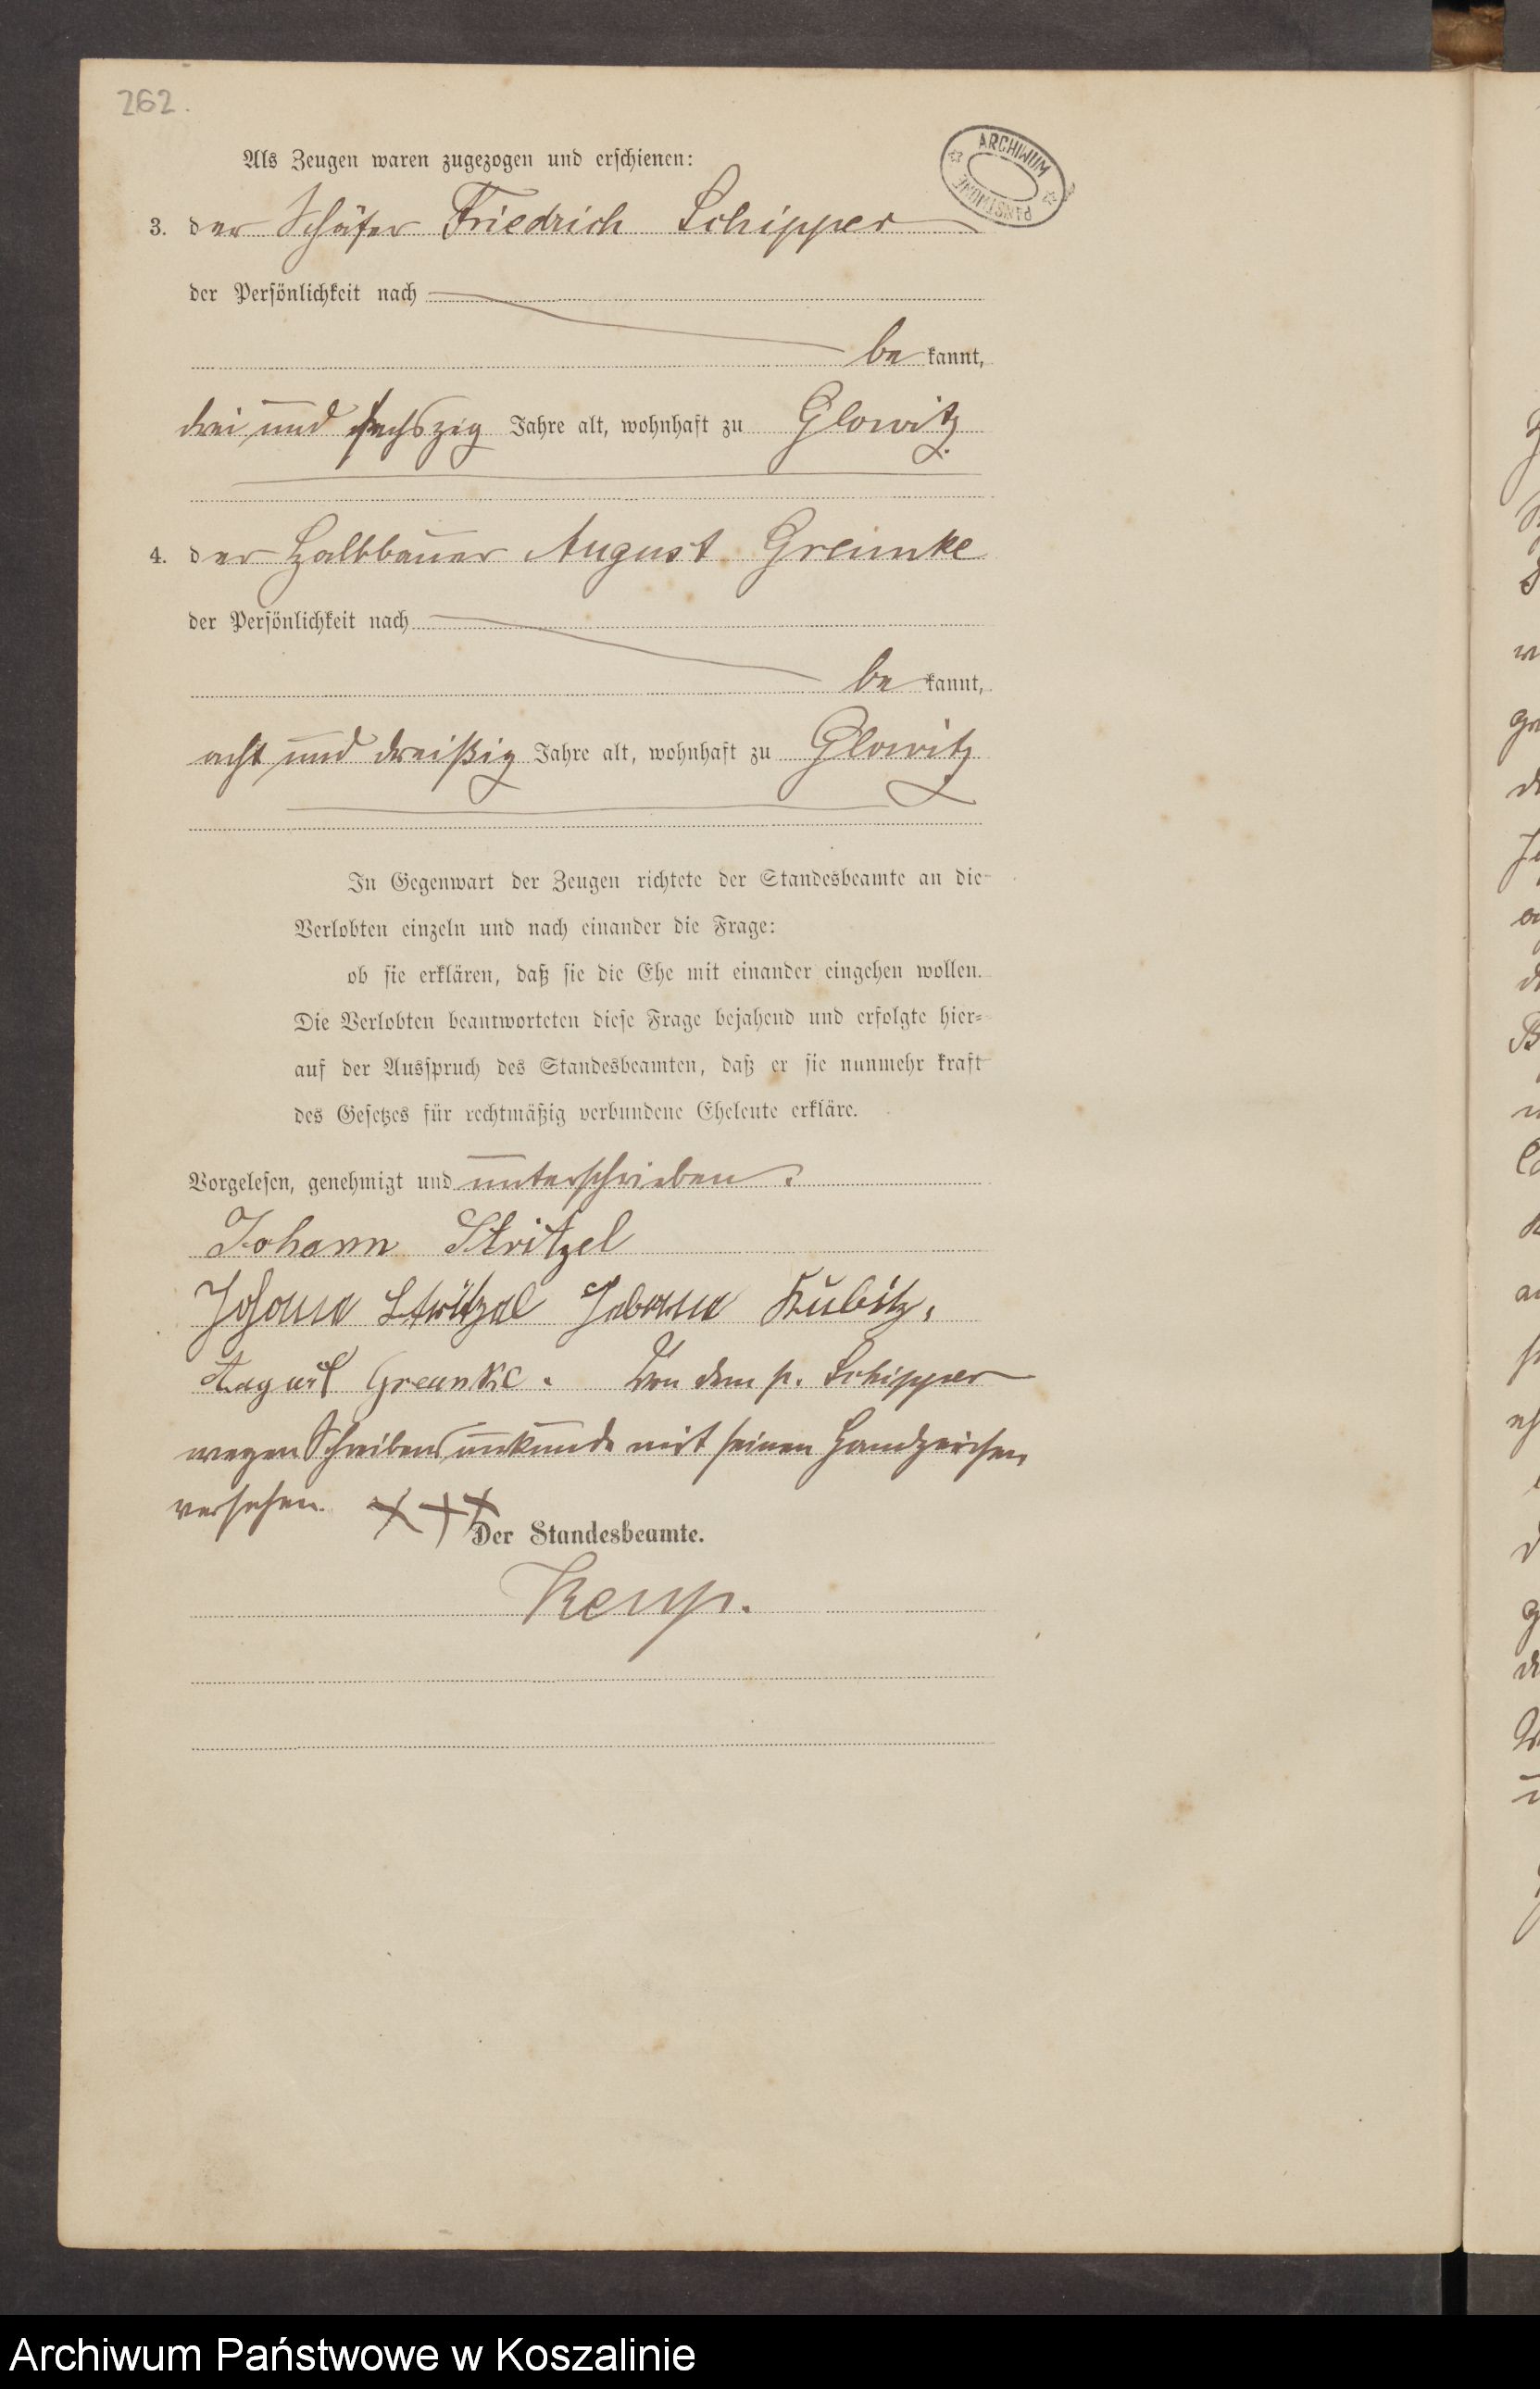 262.
ARCHIWUM PAŃSTWOWE
Als Zeugen waren zugezogen und erschienen:
3. der Schäfer Friedrich Schipper
der Persönlichkeit nach
be kannt,
drei und sechszig Jahre alt, wohnhaft zu Glowitz
4. der Halbbauer August Greunke
der Persönlichkeit nach
be kannt,
acht und dreißig Jahre alt, wohnhaft zu Glowitz
In Gegenwart der Zeugen richtete der Standesbeamte an die
Verlobten einzeln und nach einander die Frage:
ob sie erklären, daß sie die Ehe mit einander eingehen wollen.
Die Verlobten beantworteten diese Frage bejahend und erfolgte hier-
auf der Ausspruch des Standesbeamten, daß er sie nunmehr kraft
des Gesetzes für rechtmäßig verbundene Eheleute erkläre.
Vorgelesen, genehmigt und unterschrieben.
Johann Stritzel
Stritzel Kubitz.
August Greunke. Von dem p. Schipper
wegen Schreibensunkunde mit seinen Handzeichen
versehen. +++
Der Standesbeamte.
Archiwum Państwowe w Koszalinie